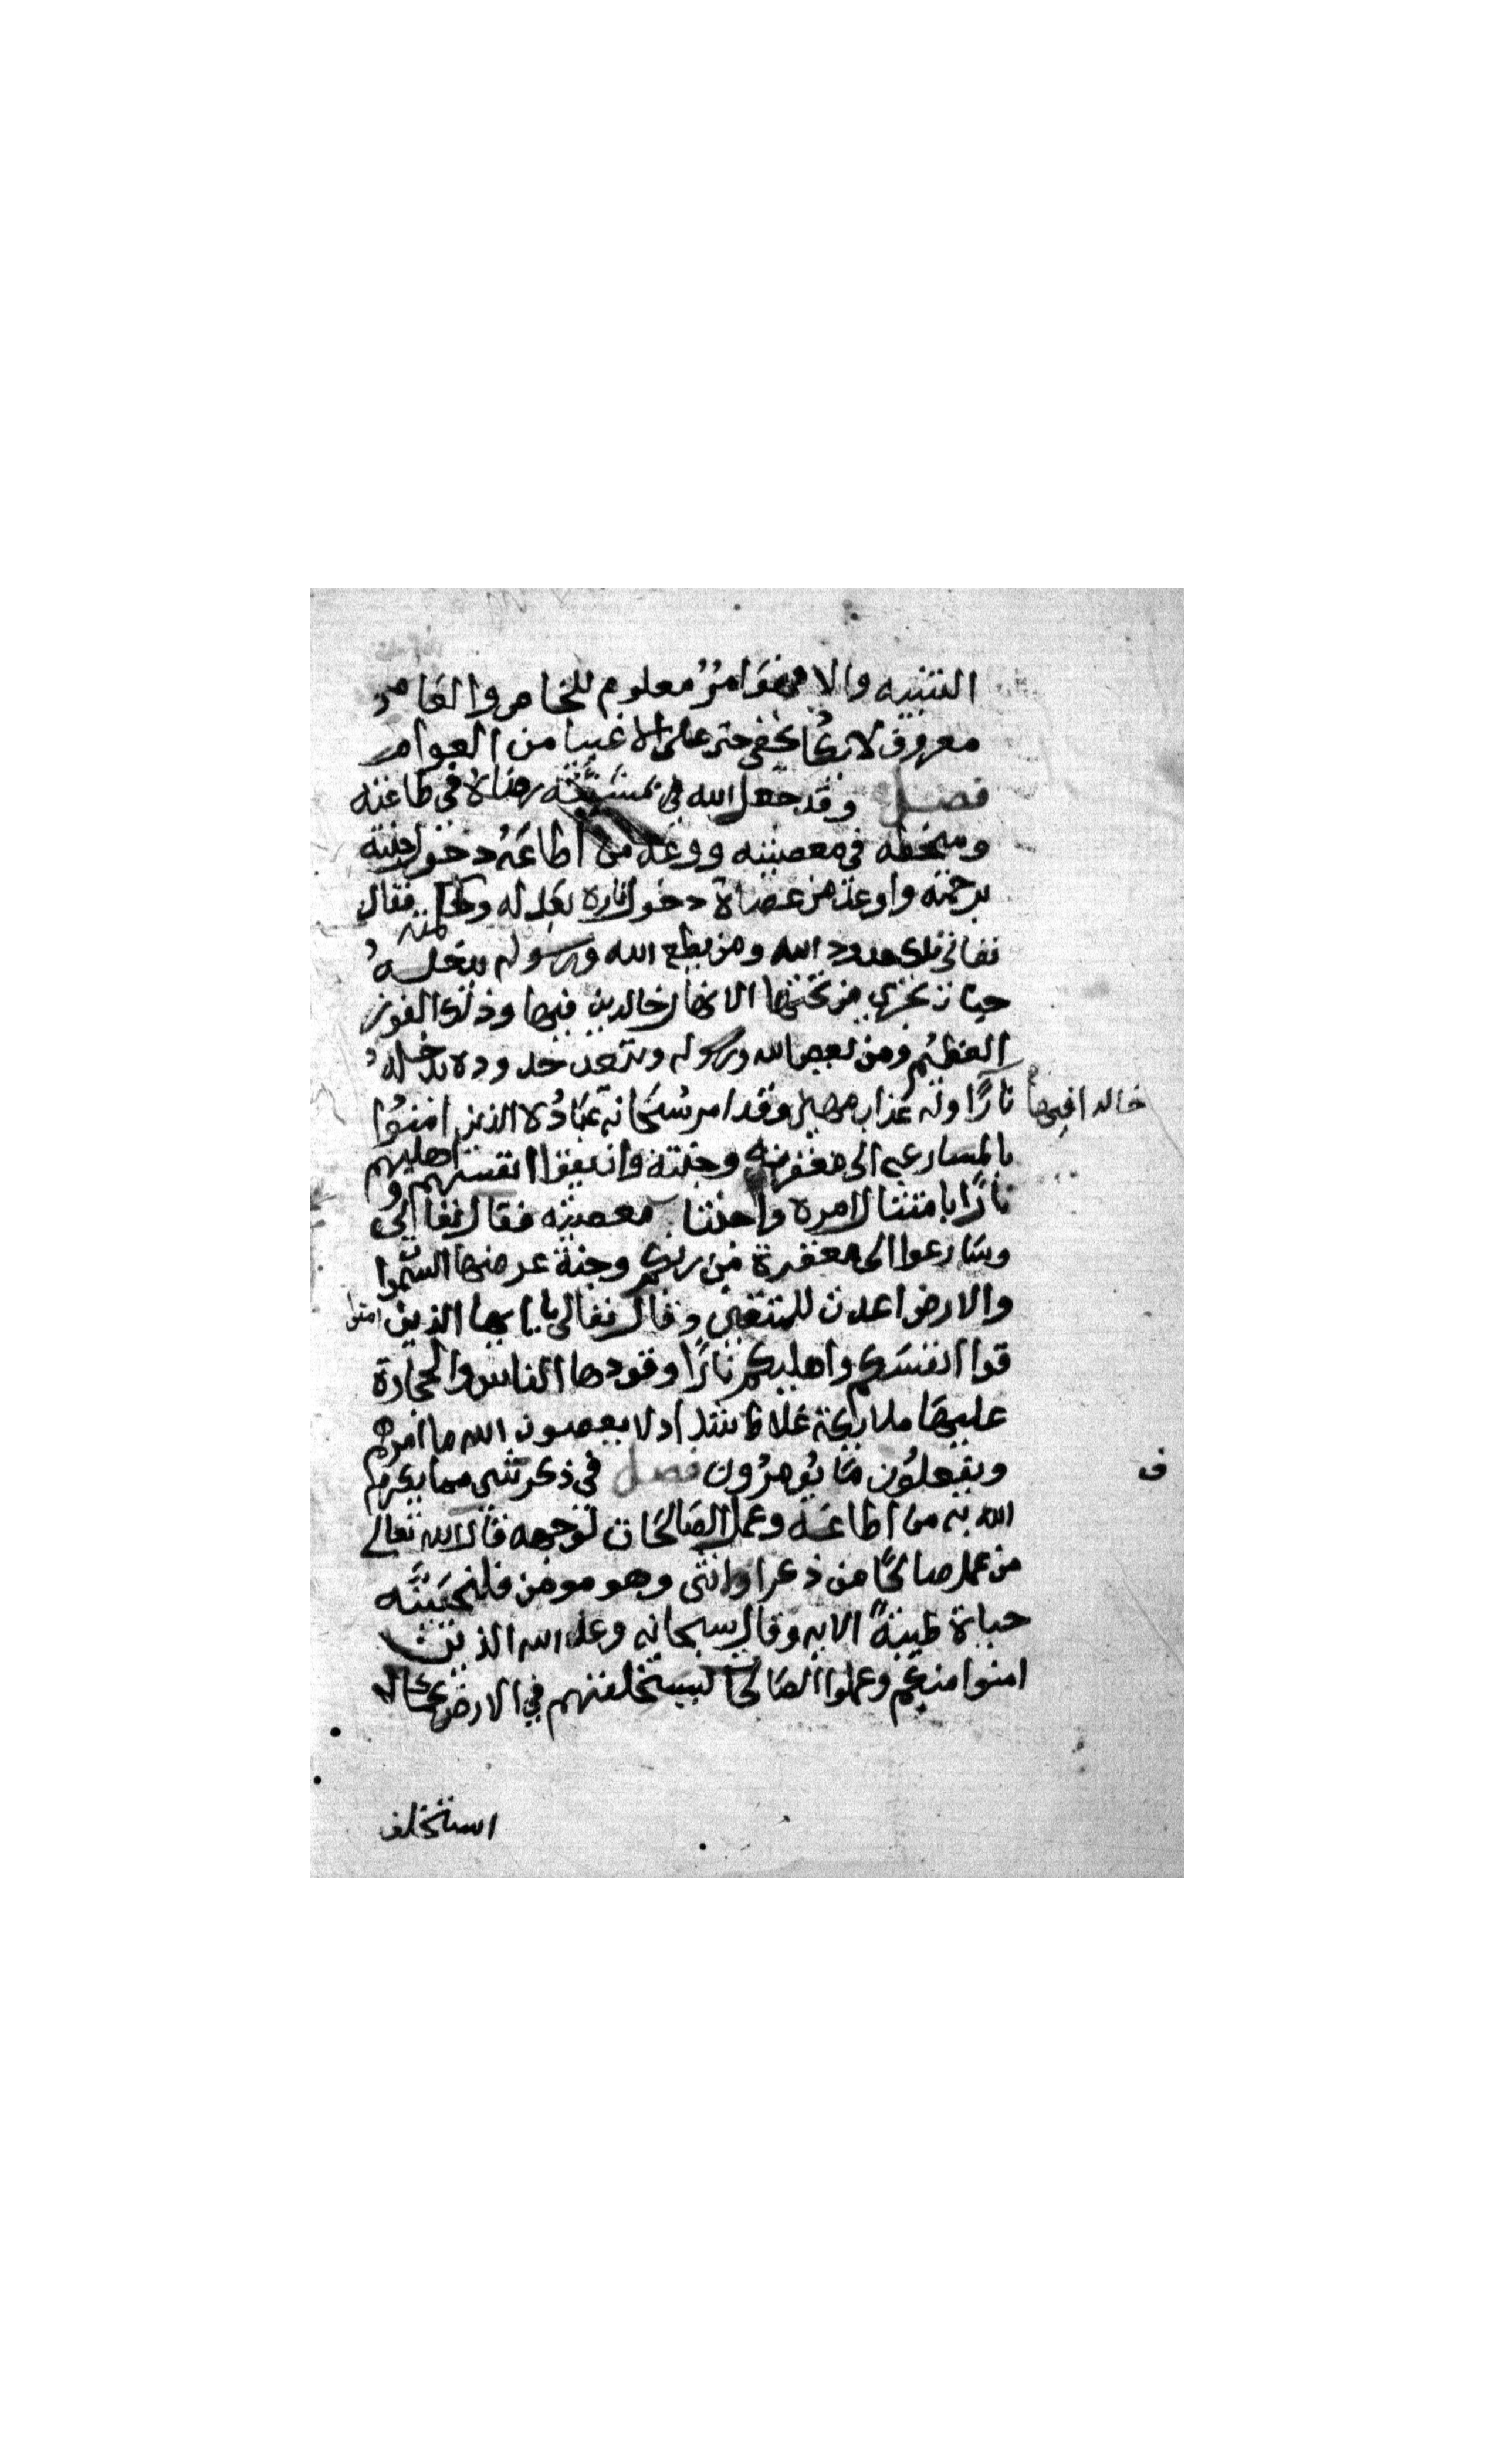 التنبيه والا فهو امرٌ معلوم للخاص والعام
معروف لا يكاد يخفى حتى على الاغبيا من العوام
فصل وقد جعل الله في مشيئته رضاه في طاعته
وسخطه في معصيته ووعد من اطاعه دخول جنته
برحمته واوعد من عصاه دخول ناره بعدله وحكمته فقال
تعالى تلك حدود الله ومن يطع الله ورسوله يدخله
جنات تجري من تحتها الانهار خالدين فيها وذلك الفوز
العظيم ومن يعص الله ورسوله ويتعد حدوده يدخله
نارًا وله عذاب مهين وقد امر سبحانه عباده الذين امنوا
خالدا فيها
بالمسارعه الى مغفرته وجنته وان يقوا انفسهم و اهليهم
نارًا بامتثال امره واجتناب معصيته فقال تعالى
وسارعوا الى مغفرة من ربكم وجنة عرضها السموا
والارض اعدت للمتقين وقال تعالى يا ايها الذين امنوا
قوا انفسكم واهليكم نارًا وقودها الناس والحجارة
عليها ملايكة غلاظ شداد لا يعصون الله ما امرهم
ويفعلون ما يومرون فصل في ذكر شي مما يكرم
ف
الله به من اطاعه وعمل الصالحات لوجهه قال الله تعالى
من عمل صالحًا من ذكر او انثى وهو مومن فلنحيينه
حياة طيبةً الايه وقال سبحانه وعد الله الذين
امنوا منكم وعملوا الصالحات ليستخلفنهم في الارض كما
استخلف